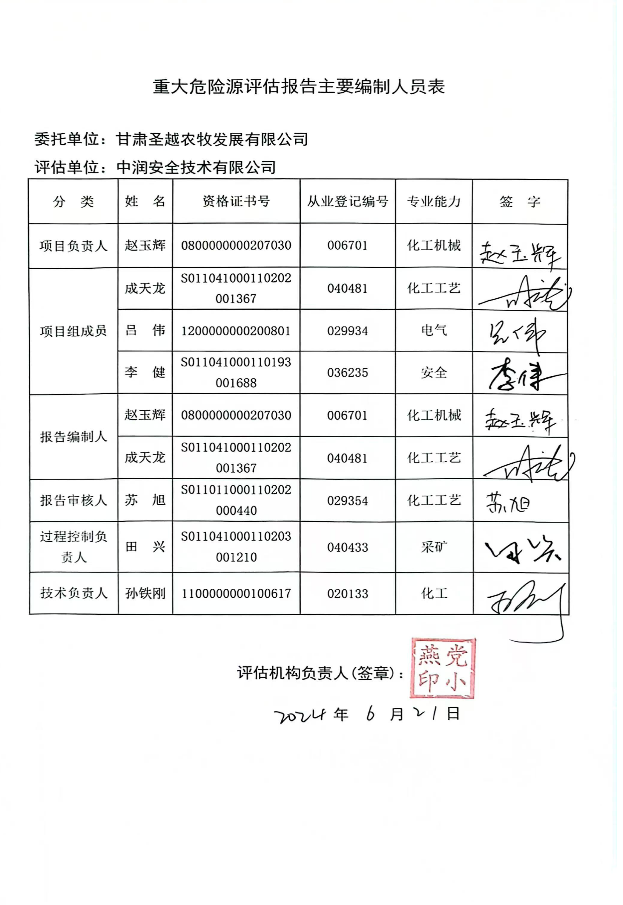 重大危险源评估报告主要编制人员表
委托单位：甘肃圣越农牧发展有限公司
评估单位：中润安全技术有限公司
分 类 姓 名 资格证书号 从业登记编号 专业能力 签 字
项目负责人 赵玉辉 0800000000207030 006701 化工机械 赵玉辉
项目组成员 成天龙 S011041000110202001367 040481 化工工艺
吕 伟 1200000000200801 029934 电气 吕伟
李 健 S011041000110193001688 036235 安全 李健
报告编制人 赵玉辉 0800000000207030 006701 化工机械 赵玉辉
成天龙 S011041000110202001367 040481 化工工艺
报告审核人 苏 旭 S011011000110202000440 029354 化工工艺 苏旭
过程控制负责人 田 兴 S011041000110203001210 040433 采矿 田兴
技术负责人 孙铁刚 1100000000100617 020133 化工
评估机构负责人(签章)：
党小燕印
2024年 6月21日